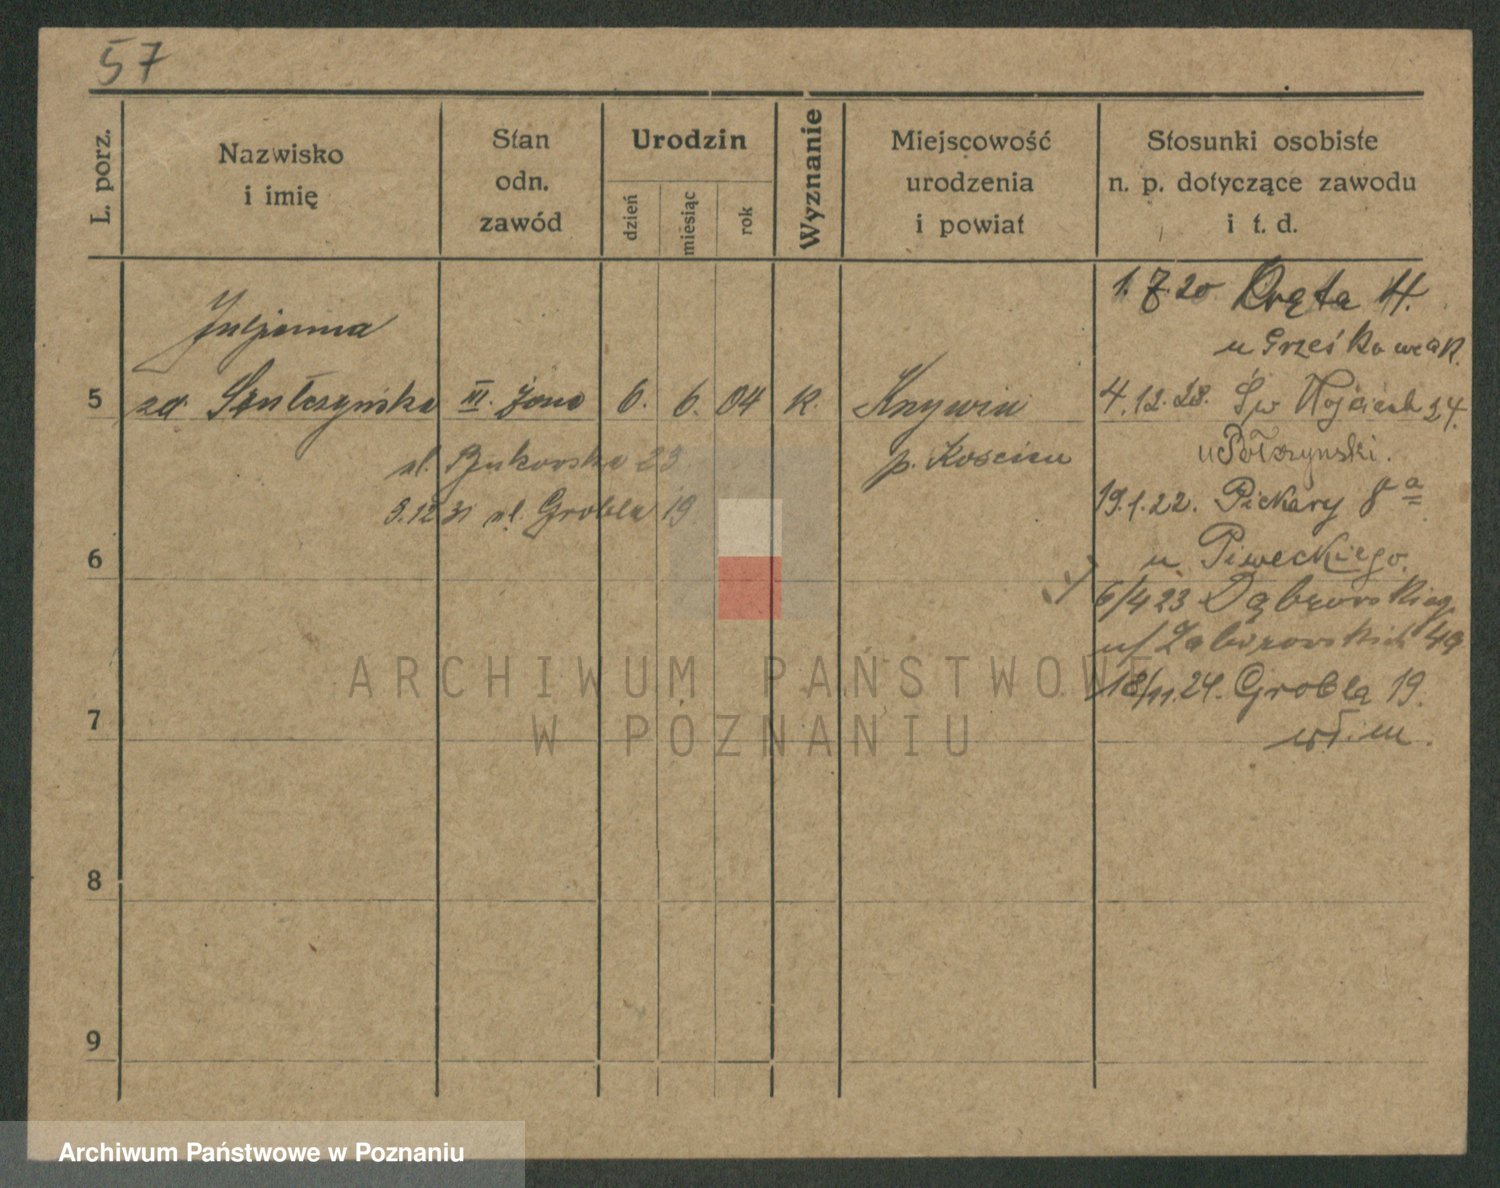 57
L. porz.
Nazwisko
i imię
Stan
odn.
zawód
Urodzin
dzień
miesiąc
rok
Wyznanie
Miejscowość
urodzenia
i powiat
Stosunki osobiste
n. p. dotyczące zawodu
i t. d.
1.7.20 Kręta 14.
u Grześkowiak
Juljanna
5 zd. III. żona 6. 6. 04 K. Krzywiń
4.12.28. Św Wojciech 24.
ul. Bukowska 23
p. Kościan
u Połczynski.
5.12 31 ul. Grobla 19
19.1.22. Piekary 8a
6
u Piweckiego.
6/4 23 Dąbrowskieg.
49
18/11.24. Grobla 19.
7
wł. m.
8
9
ARCHIWUM PAŃSTWOWE
W POZNANIU
Archiwum Państwowe w Poznaniu